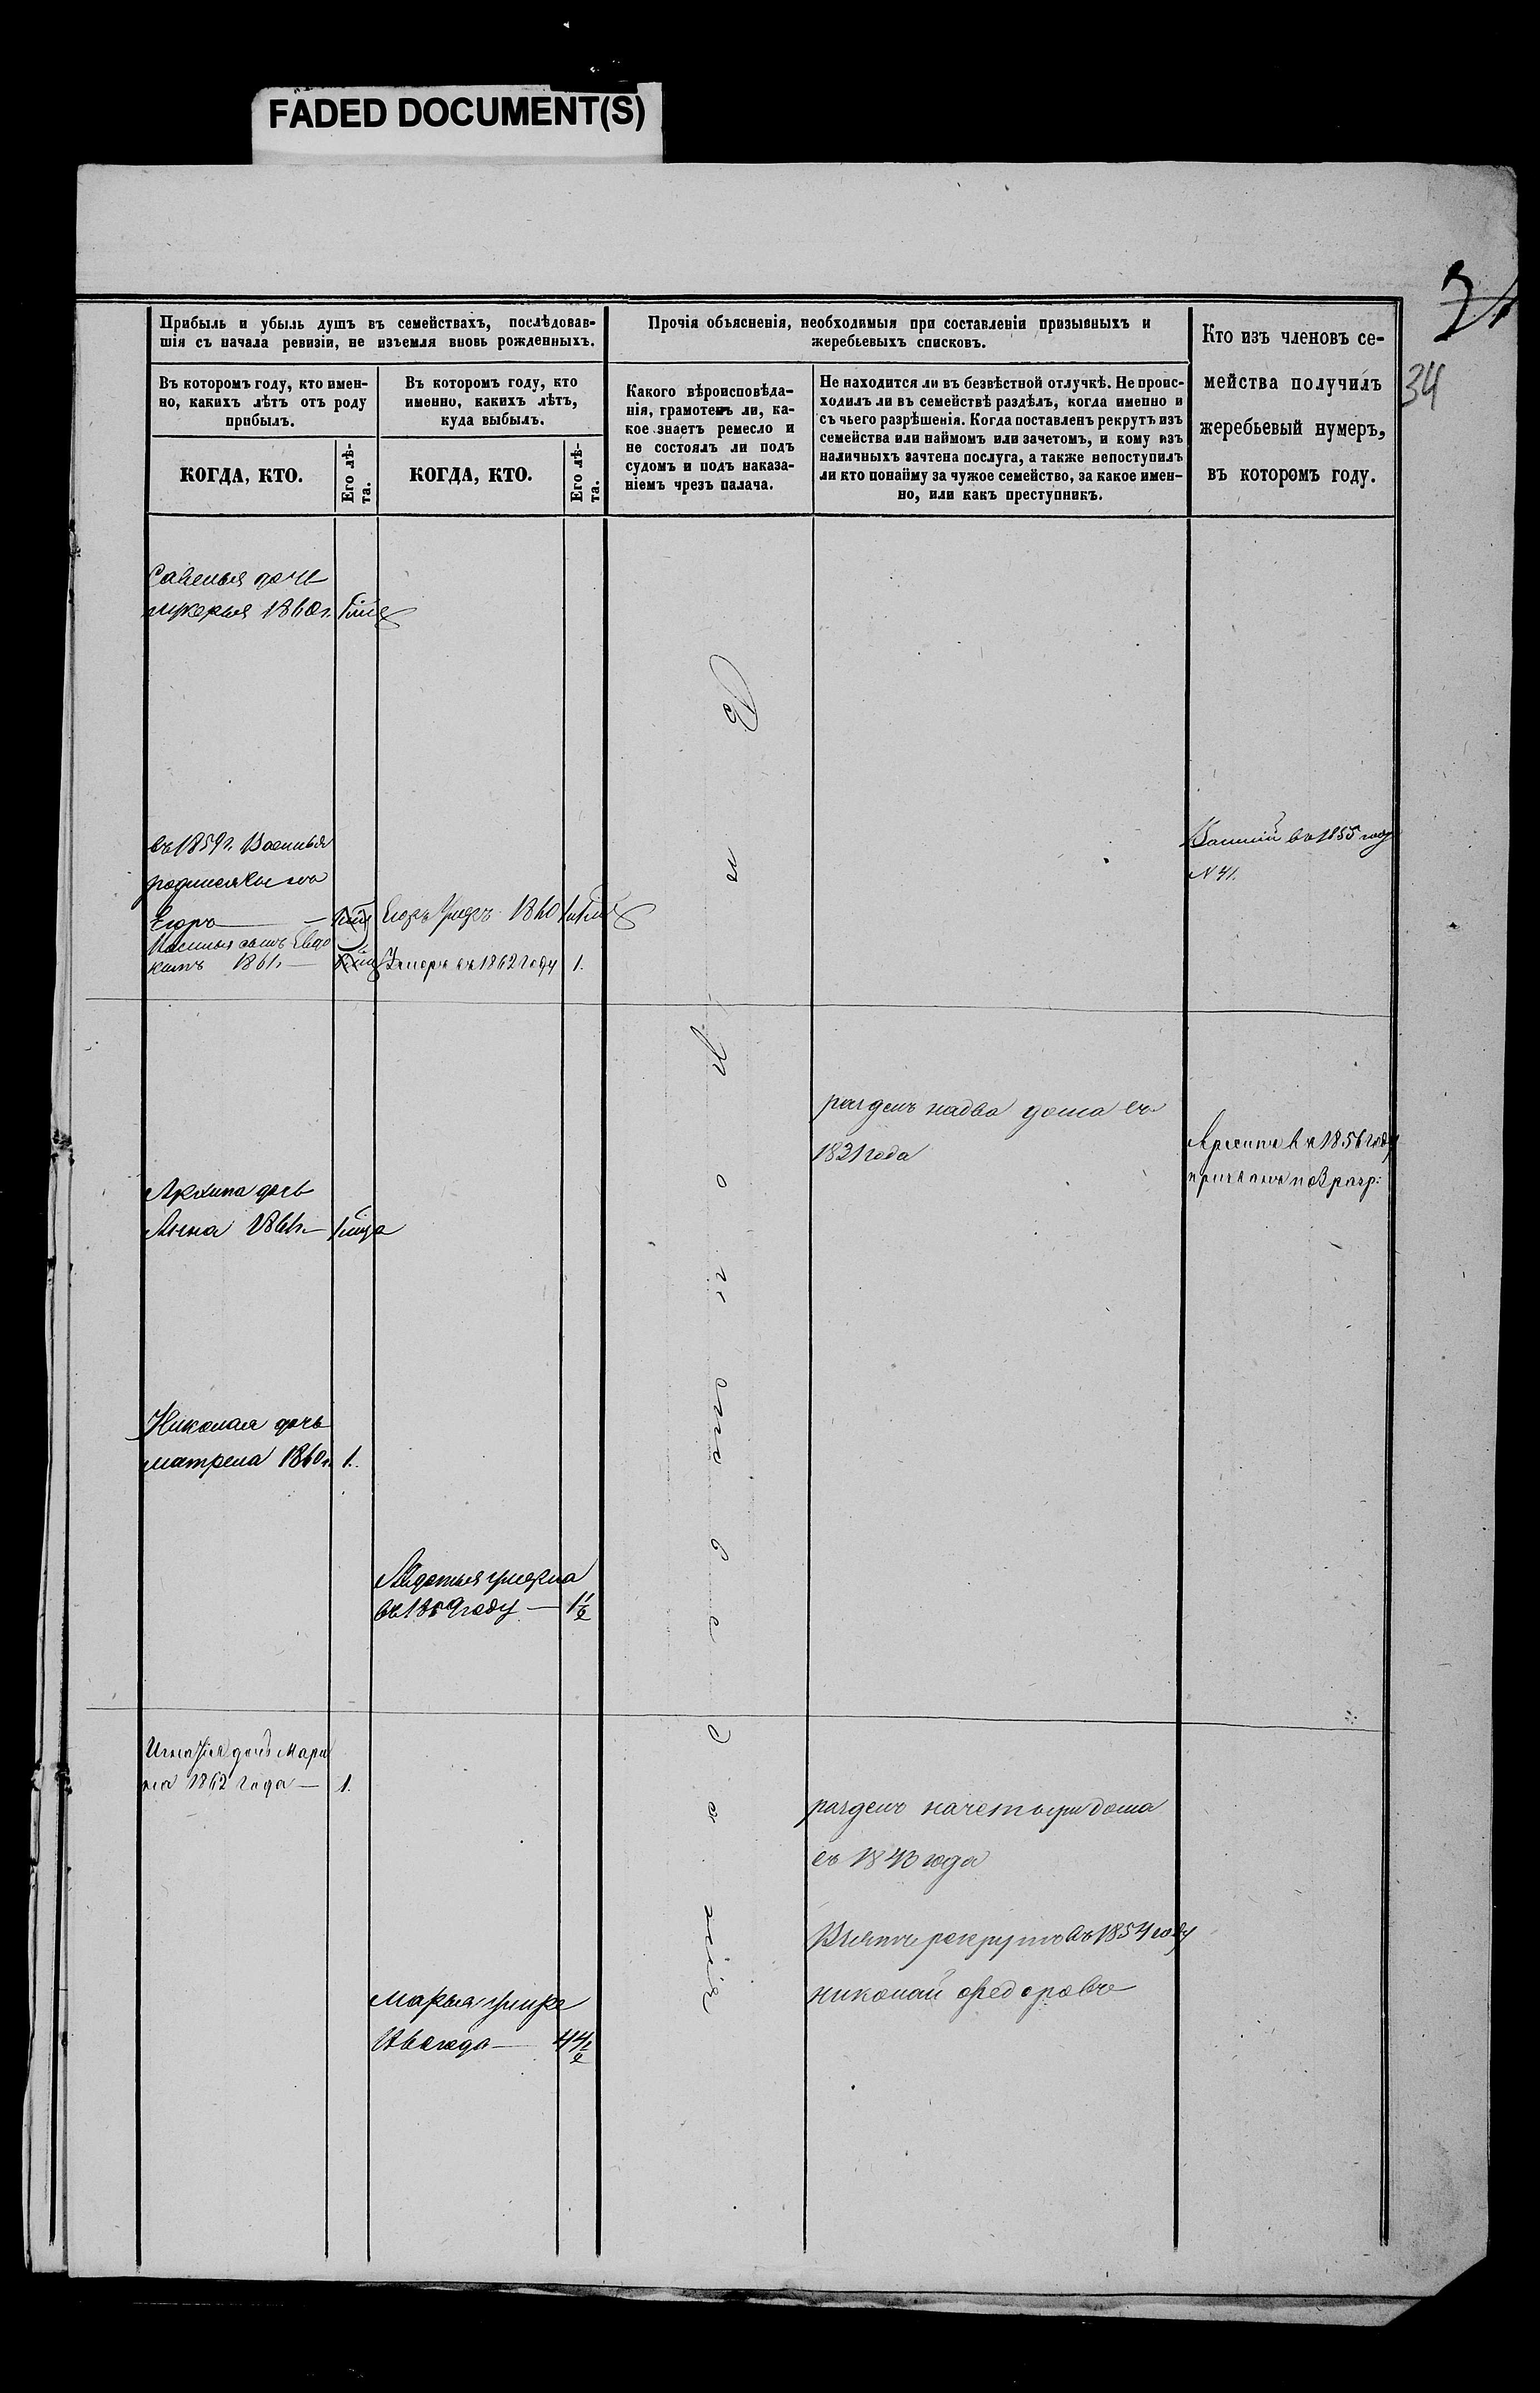 FADED DOCUMENT(S)
34
Прибыль и убыль душъ въ семействахъ, послѣдовав-
шія съ начала ревизіи, не изъемля вновь рожденныхъ.
Прочія объясненія, необходимыя при составленіи призывныхъ и
жеребьевыхъ списковъ.
Кто изъ членовъ се-
мейства получилъ
жеребьевый нумеръ,
въ которомъ году.
Въ которомъ году, кто имен-
но, какихъ лѣтъ отъ роду
прибылъ.
Въ которомъ году, кто
именно, какихъ лѣтъ,
куда выбылъ.
Какого вѣроисповѣда-
нія, грамотенъ ли, ка-
кое знаетъ ремесло и
не состоялъ ли подъ
судомъ и подъ наказа-
ніемъ чрезъ палача.
Не находится ли въ безвѣстной отлучкѣ. Не проис-
ходилъ ли въ семействѣ раздѣлъ, когда именно и
съ чьего разрѣшенія. Когда поставленъ рекрутъ изъ
семейства или наймомъ или зачетомъ, и кому изъ
наличныхъ зачтена послуга, а также непоступилъ
ли кто понайму за чужое семейство, за какое имен-
но, или какъ преступникъ.
КОГДА, КТО.
Его лѣ-
та.
КОГДА, КТО.
Его лѣ-
та.
дочь
1860г.
въ 1859г. Василья
родился сынъ
Егоръ
Егоръ умеръ 1860
сынъ Евдо
кимъ 1861г.
Умеръ въ 1862 году 1.
Василій въ 1855 году
№ 41.
разделъ на два дома съ
1831 года
въ 1856 году
Архипа дочь
Анна 1861г.
Николая дочь
матрена 1860г. 1.
Авдотья умерла
въ 1859 году — 1½
Игнатія дочь Мари
на 1862 года — 1.
разделъ на четыри дома
съ 1843 года
Взятъ рекрутъ въ 1854 году
николай Федоровъ
марья